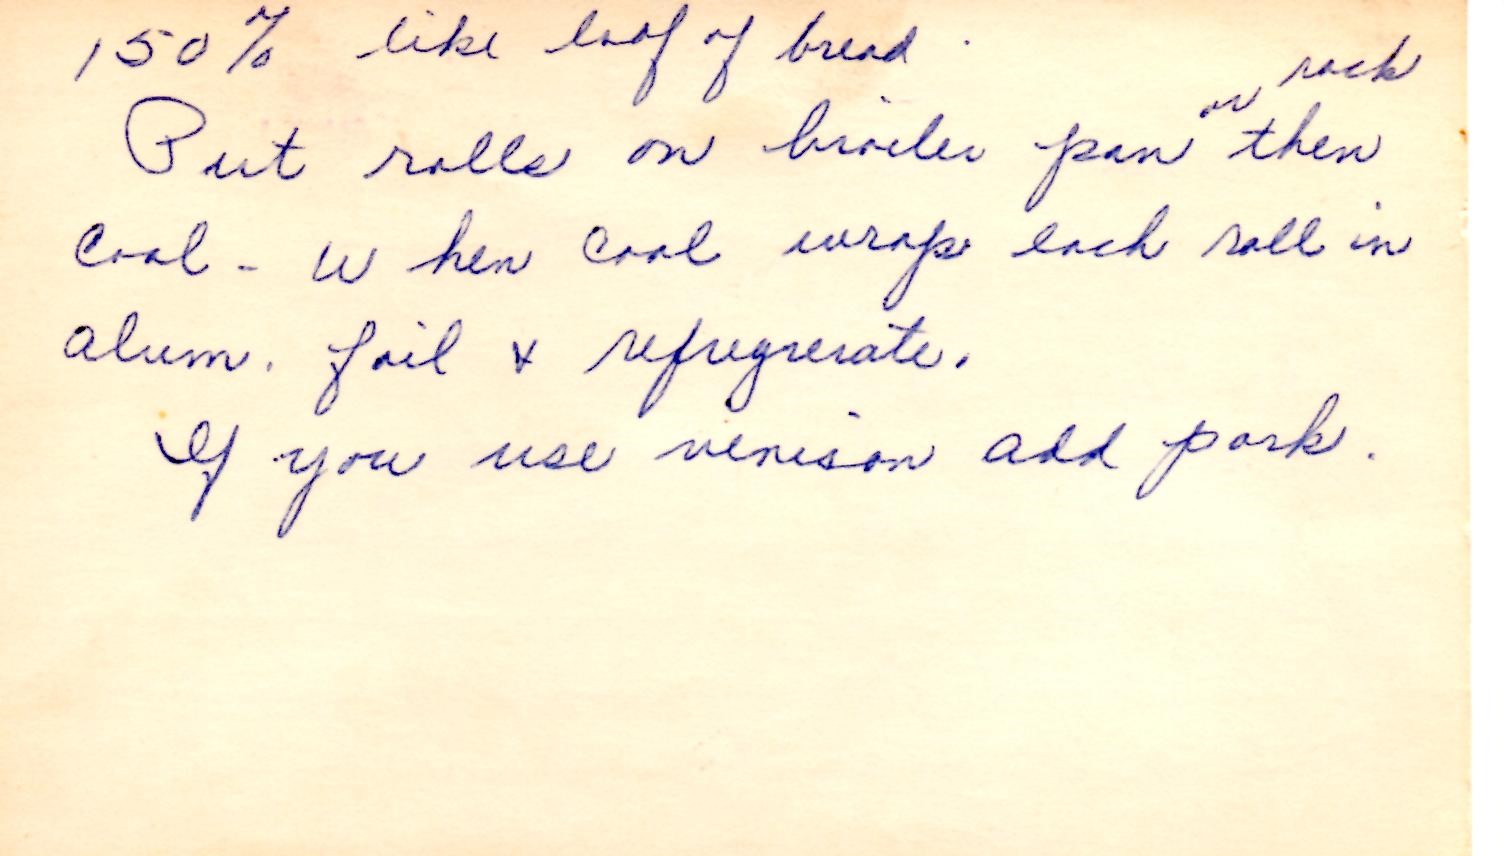 150% like loaf of bread.
Put rolls on broiler pan or rack then
cool - When cool wrap each roll in
alum. foil & refregrerate.
If you use venison add pork.